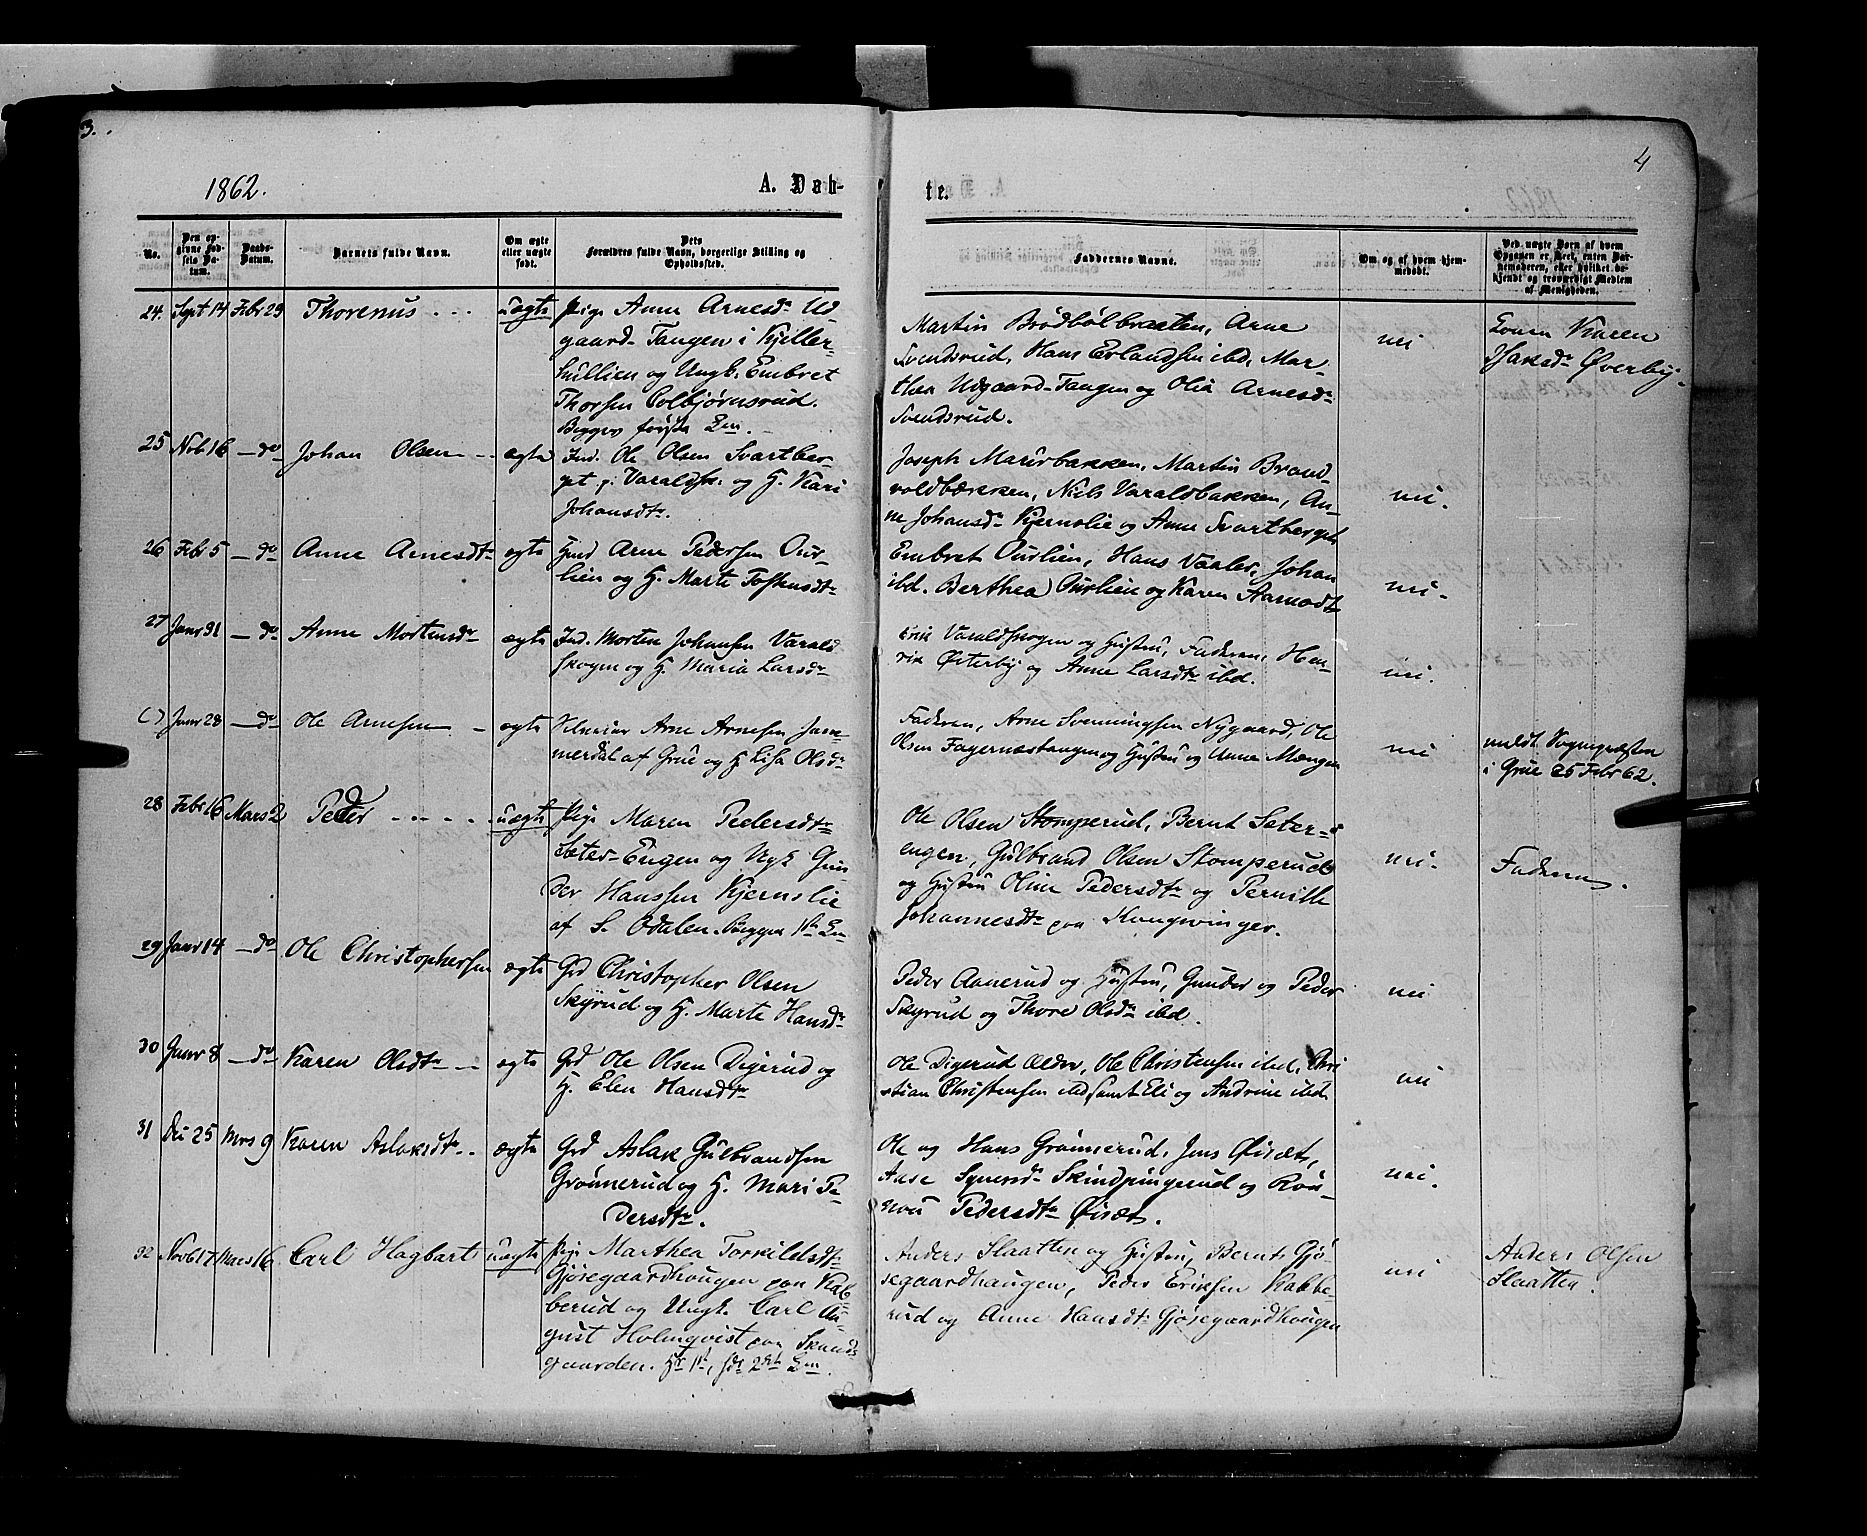 3.
4
1862.
A. Døb-
te.
No.
Den opgivne Fødsels Datum.
Daabs-Datum.
Barnets fulde Navn.
Om ægte eller uægte født.
Dets Forældres fulde Navn, borgerlige Stilling og Opholdssted.
Faddernes Navne.
Om og af hvem hjemmedøbt.
Ved uægte Børn af hvem Opgaven er skeet, enten Barnemoderen, eller hvilket bekjendt og troværdigt Medlem af Menigheden.
24. Sept 14 Febr 23 Thorenus . . . uægte Pige Anne Arnesdr Ud-
gaard-Tangen i Kjeller-
hullien og Ungk. Embret
Thorsen Colbjørnsrud.
Begges første Lm.
Martin Brødbølbraaten, Arne
Svendsrud, Hans Erlandsen ibd, Mar-
thea Udgaard-Tangen og Olia Arnesdr
Svendsrud.
nei
Konen Karen
Isaksdr Øverby.
25 Novb 16 - do - Johan Olsen - - ægte Ind. Ole Olsen Svartber-
get p. Varaldsk. og H. Kari
Johansdtr.
Joseph Mariisbakken, Martin Brand-
voldbækken, Niels Varaldbakken, An-
ne Johansdr Kjernslie og Anne Svartberget
nei.
26 Febr 5 - do Anne Arnesdtr ægte Ind Arne Pedersen Our-
lien og H. Marte Tostensdtr
Embret Ourlien, Hans Vaaler, Johan
ibd. Berthea Ourlien og Karen Aamodt
nei.
27 Janr 31 - do Anne Mortensdr ægte Ind. Morten Johansen Varald
skogen og H. Maria Larsdr
Erik Varaldskogen og Hustru, Faderen, Hen-
rik Østerby og Anne Larsdtr ibd.
nei.
( ) Janr 28 - do Ole Arnesen - ægte Arne Arnesen Jam-
merdal af Grue og H Lisa Olsdr
Faderen, Arne Svenningsen Nygaard, Ole
Olsen Fagernæstangen og Hustru og Anne Mængen
nei
meldt Sognepræsten
i Grue 25 Febr 62.
28 Febr 16 Mars 2 Peder - - - - - uægte Pige Maren Pedersdtr
Sæter-Engen og Ugk Gun
der Hanssen Kjernslie
af S. Odalen. Begges 1ste Lm
Ole Olsen Stomperud, Bernt Seter-
engen, Gulbrand Olsen Stomperud
og Hustru Oline Pedersdtr og Pernille
Johannesdtr paa Kongsvinger.
nei.
Faderen.
29 Janr 14 - do - Ole Christophersen ægte Grd Christopher Olsen
Skyrud og H. Marte Hansdr
Peder Aanerud og Hustru, Gunder og Peder
Skyrud og Thore Olsdr ibd.
nei
30 Janr 8 - do Karen Olsdtr - - ægte Grd Ole Olsen Digerud og
H. Elen Hansdtr
Ole Digerud ældre, Ole Christensen ibd. Chri
stian Christensen ibd samt Eli og Andrine ibd.
nei
31 Dec 25 Mrs 9 Karen Aslaksdtr - - ægte Grd Aslak Gulbrandsen
Grønnerud og H. Mari Pe-
dersdtr.
Ole og Hans Grønnerud, Jens Øisæt,
Aase Syversdr Skindpungerud og Røn-
nou Pedersdtr Øisæt.
nei.
32 Novb 17 Mars 16 Carl Hagbart uægte Pige Marthea Torkildsdtr
Gjøsegaardhougen paa Kab
berud og Ungk. Carl Au-
gust Holmqvist paa Skands
gaarden. Hs 1st, hds 2det Lm.
Anders Slaatten og Hustru, Bernt Gjø-
segaardhaugen, Peder Eriksen Kabbe-
rud og Anne Hansdtr Gjøsegaardhougen
nei
Anders Olsen
Slaatten.